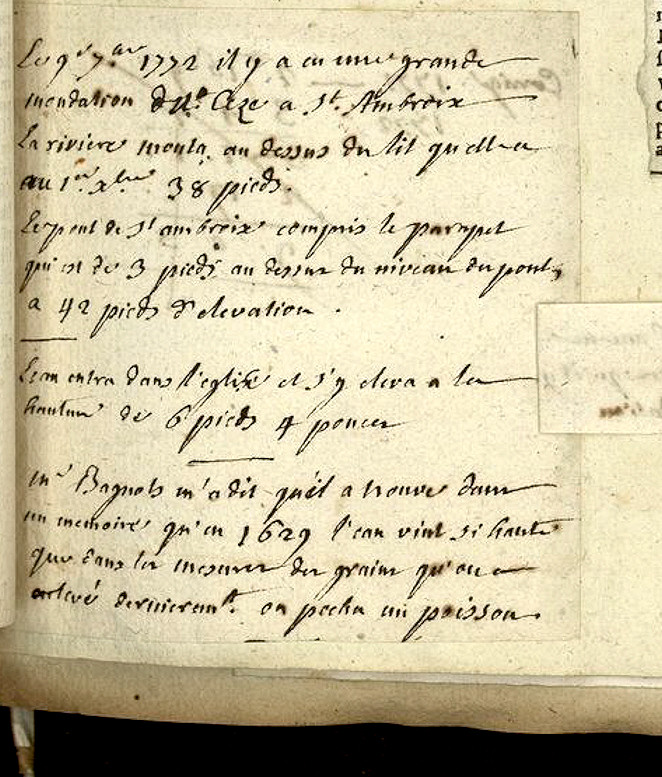 Le 9e 7bre 1772 il y a eu une grande
inondation de la Ceze a St. Ambroix
La riviere monta au dessus du lit quelle a
au 1er xbre 38 pieds.
Le pont de St ambroix compris le parapet
qui est de 3 pieds au dessus du niveau du pont,
a 42 pieds d'elevation .
L'eau entra dans l'eglise et s'y eleva a la
hauteur de 6 pieds 4 pouces
mr Bagnols m'a dit qu'il a trouvé dans
un memoire qu'en 1629 l'eau vint si haute
que dans les mesures des grains qu'on a
enlevé dernieremt. on pecha un poisson.